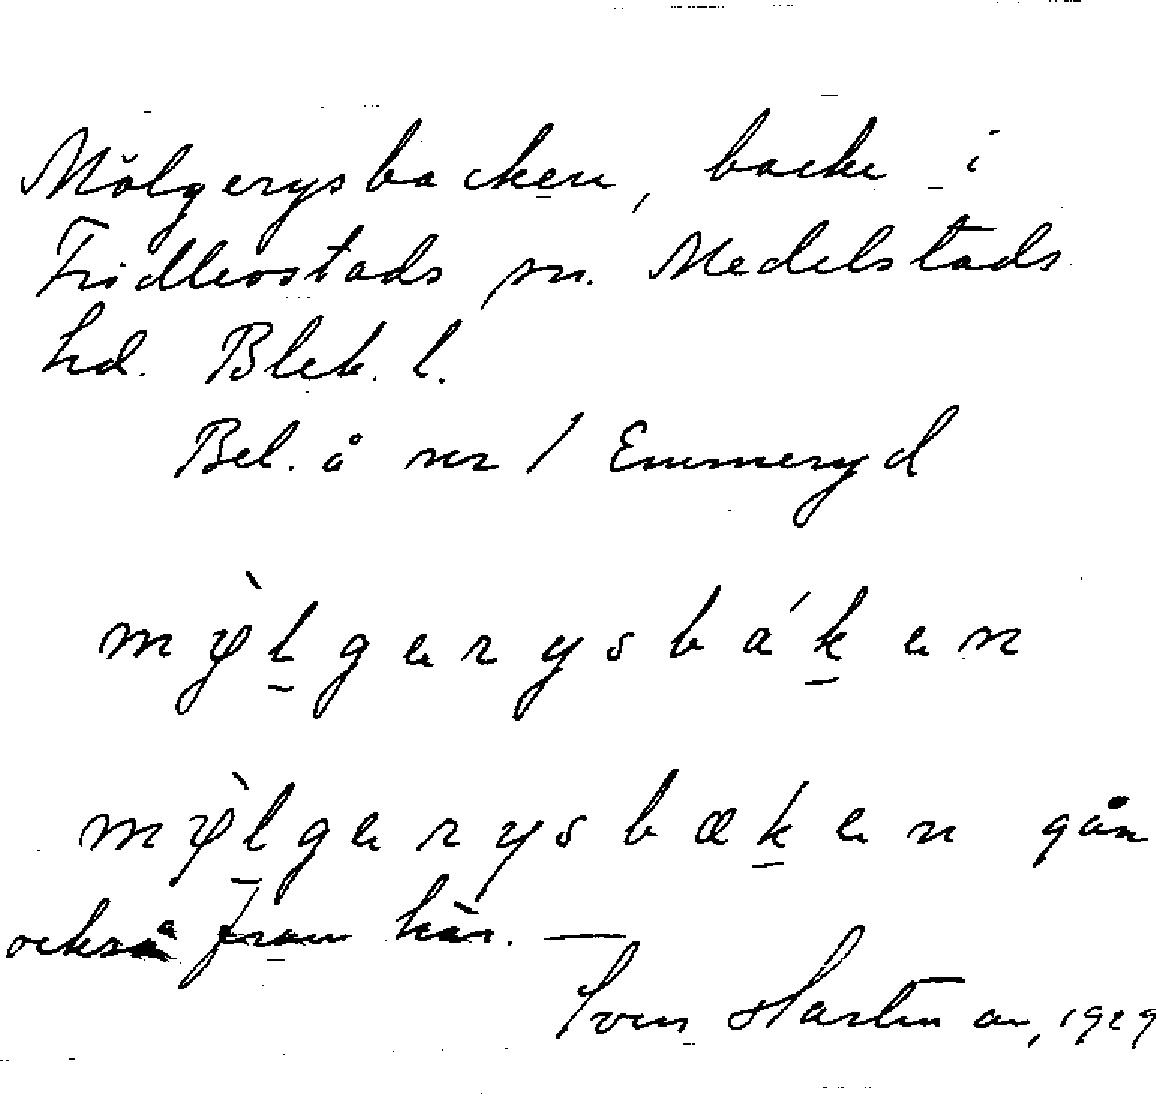 Mölgerysbacken, backe i
Fridlevstads sn. Medelstads
hd. Blek. l.
Bel. å nr 1 Emmeryd
mỳlgerysbáken
mỳlgerysbæken går
också fram här. —
Sven Hartman, 1929